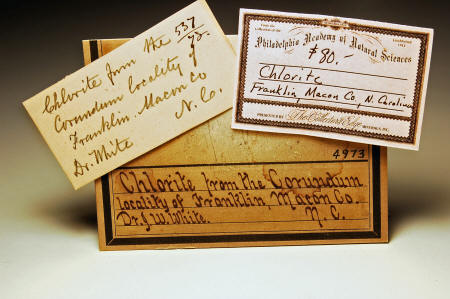 Chlorite from the 537
Corundum locality of
Franklin. Macon Co
N. Co.
Dr. White
From the
Collection of the
Established
1812
Philadelphia Academy of Natural Sciences
$80.-
Chlorite
Franklin, Macon Co., N. Carolina
4973
Chlorite from the Corundum
locality of Franklin, Macon Co.
Dr. J.W. White. N. C.